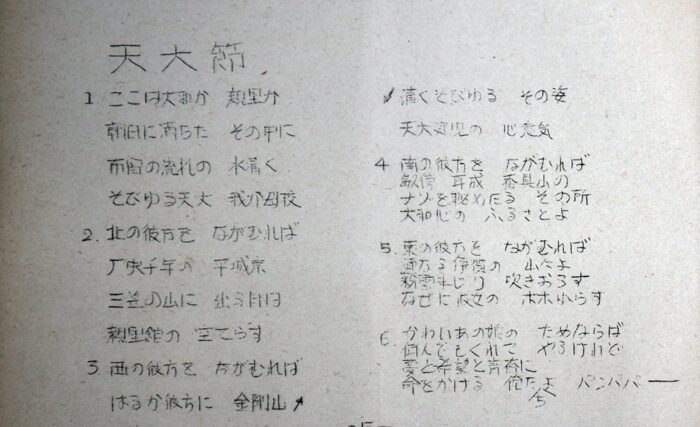 天大節
1. ここは大和か 親里か
朝日に満ちた その中に
布留の流れの 水清く
そびゆる天大 我が母校
2. 北の彼方を ながむれば
千年の 平城京
三笠の山に 出る月は
親里館の 空てらす
3. 西の彼方を ながむれば
はるか彼方に 金剛山
清くそびゆる その姿
天大健児の 心意気
4. 南の彼方を ながむれば
畝傍 耳成 香具山の
ナゾを秘めたる その所
大和心の ふるさとよ
5. 東の彼方を ながむれば
連なる伊賀の 山なみよ
粉雪まじり 吹きおろす
なぜに彼女の ホホぬらす
6. かわいあの娘の ためならば
何んでもくれて やるけれど
夢と希望と青春に
命をかける 俺たちよ バンババー